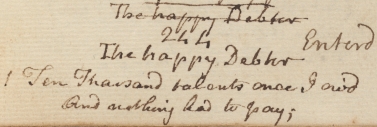 The happy Debtor
244
Enterd
The happy Debtor
1 Ten Thousand talents once I ow'd
And nothing had to pay;